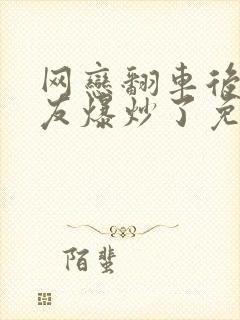 网戀翻車後
友爆炒了免
陌蜚